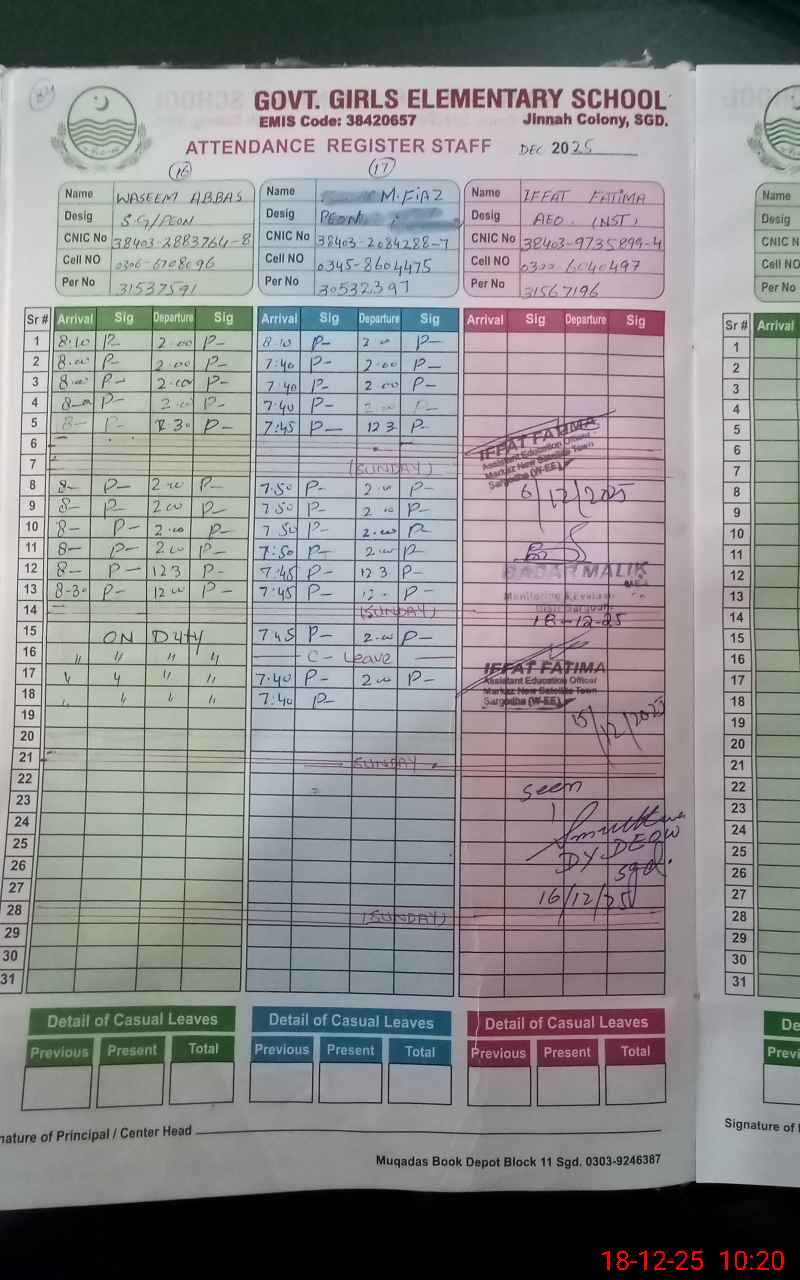 GOVT. GIRLS ELEMENTARY SCHOOL
EMIS Code: 38420657 Jinnah Colony, SGD.
ATTENDANCE REGISTER STAFF DEC 2025
16 17
Name WASEEM ABBAS Name M.FIAZ Name IFFAT FATIMA
Desig S.G/PEON Desig PEON Desig AEO. (NST)
CNIC No 38403-2883764-8 CNIC No 38403-2084288-7 CNIC No 38403-9735899-4
Cell NO 0306-6708096 Cell NO 0345-8604475 Cell NO 0300-6040497
Per No 31537591 Per No 30532397 Per No 31567196
Sr # Arrival Sig Departure Sig Arrival Sig Departure Sig Arrival Sig Departure Sig
1 8.10 P- 2.00 P- 8.10 P- 2 00 P-
2 8.00 P- 2.00 P- 7:40 P- 2.00 P-
3 8.00 P- 2.00 P- 7:40 P- 2 00 P-
4 8- P- 2.00 P- 7:40 P- 2 00 P-
5 8- P- 12 30 P- 7:45 P- 12 3 P-
6
7 (SUNDAY)
IFFAT FATIMA
Assistant Education Officer
Markaz New Satellite Town
Sargodha (W-EE)
6/12/2025
8 8- P- 2.00 P- 7.50 P- 2.00 P-
9 8- P- 2.00 P- 7.50 P- 2.00 P-
10 8- P- 2.00 P- 7.50 P- 2.00 P-
11 8- P- 2.00 P- 7:50 P- 2.00 P-
12 8- P- 12 3 P- 7:45 P- 12 3 P-
13 8-30 P- 12 00 P- 7:45 P- 12. P-
MALIK
14 (SUNDAY)
18-12-25
15 ON Duty 7:45 P- 2.00 P-
16 " " " " C- Leave
17 " " " " 7.40 P- 2.00 P-
18 " " " " 7:40 P-
IFFAT FATIMA
Assistant Education Officer
Markaz New Satellite Town
Sargodha (W-EE)
15/12/2025
19
20
21 SUNDAY
22
23 seen
24
25 DY.DEO W
26 sgd.
27 16/12/25
28 (SUNDAY)
29
30
31
Detail of Casual Leaves Detail of Casual Leaves Detail of Casual Leaves
Previous Present Total Previous Present Total Previous Present Total
nature of Principal / Center Head
Muqadas Book Depot Block 11 Sgd. 0303-9246387
Name
Desig
CNIC N
Cell NO
Per No
Sr # Arrival
1
2
3
4
5
6
7
8
9
10
11
12
13
14
15
16
17
18
19
20
21
22
23
24
25
26
27
28
29
30
31
De
Previ
Signature of
18-12-25 10:20